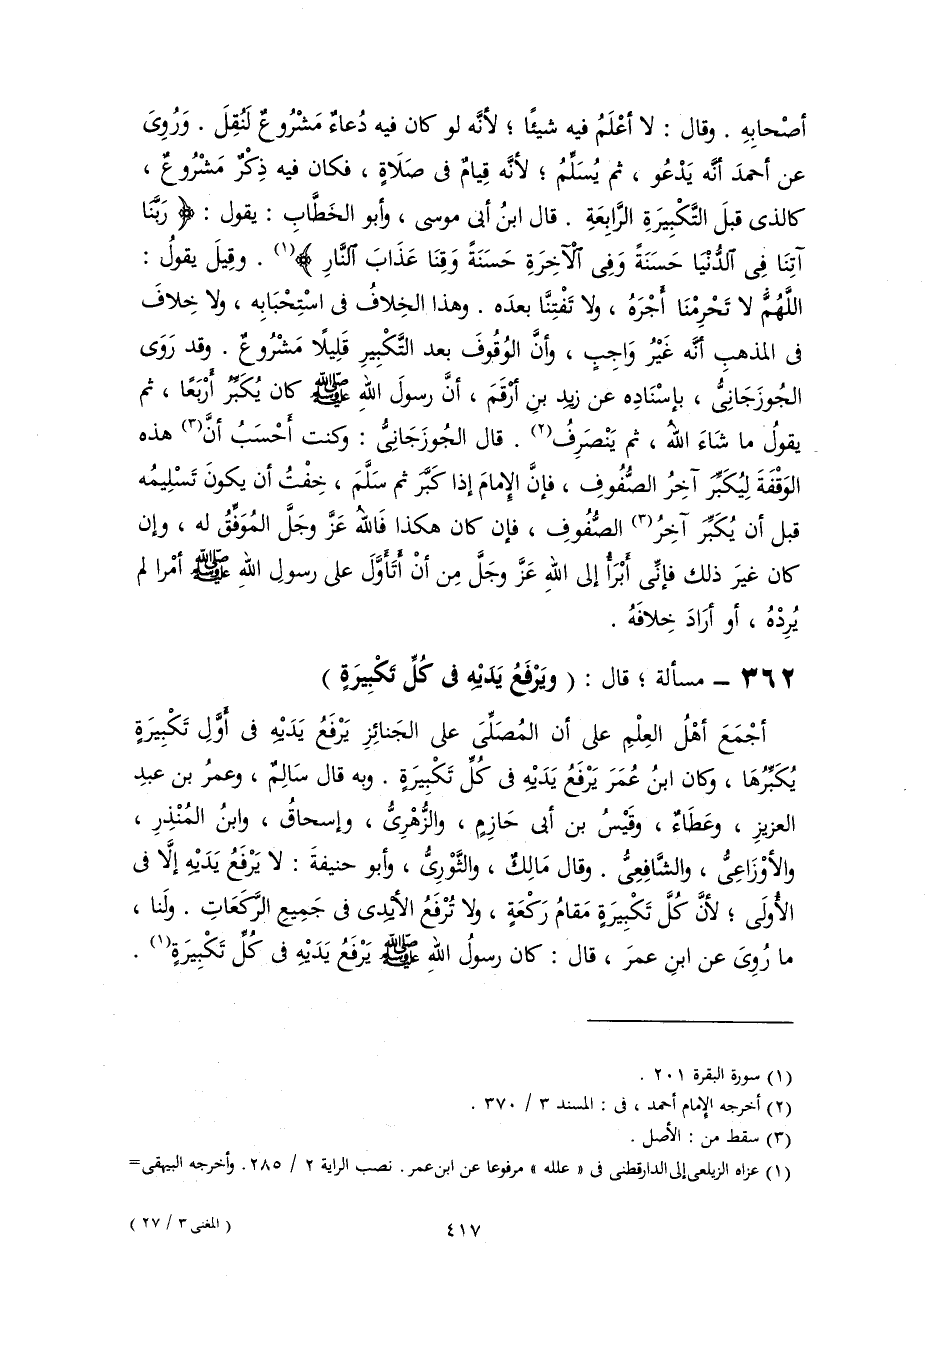 أصْحابِهِ . وقال : لا أعْلَمُ فيه شيئًا ؛ لأنَّه لو كان فيه دُعاءٌ مَشْرُوعٌ لَنُقِلَ . وَرُوِىَ
عن أحمدَ أنَّه يَدْعُو ، ثم يُسَلِّمُ ؛ لأنَّه قِيامٌ فى صَلَاةٍ ، فكان فيه ذِكْرٌ مَشْرُوعٌ ،
كالذى قبلَ التَّكْبِيرَةِ الرَّابِعَةِ . قال ابنُ أبى موسى ، وأبو الخَطَّابِ : يقول : ﴿ رَبَّنَا
آتِنَا فِى ٱلدُّنْيَا حَسَنَةً وَفِى ٱلْآخِرَةِ حَسَنَةً وَقِنَا عَذَابَ ٱلنَّارِ ﴾(١) . وقِيلَ يقولُ :
اللَّهُمَّ لا تَحْرِمْنَا أَجْرَهُ ، ولا تَفْتِنَّا بعدَه . وهذا الخِلافُ فى اسْتِحْبَابِه ، ولا خِلافَ
فى المذهبِ أنَّه غَيْرُ وَاجِبٍ ، وأنَّ الوُقُوفَ بعد التَّكْبِيرِ قَلِيلًا مَشْرُوعٌ . وقد رَوَى
الجُوزَجَانِىُّ ، بإسْنَادِه عن زيدِ بنِ أرْقَمَ ، أنَّ رسولَ اللهِ ﷺ كان يُكَبِّرُ أَرْبَعًا ، ثم
يقولُ ما شَاءَ اللهُ ، ثم يَنْصَرِفُ(٢) . قال الجُوزَجَانِىُّ : وكنت أَحْسَبُ أنَّ(٣) هذه
الوَقْفَةَ لِيُكَبِّرَ آخِرُ الصُّفُوفِ ، فإنَّ الإِمامَ إذا كَبَّرَ ثم سَلَّمَ ، خِفْتُ أن يكونَ تَسْلِيمُه
قبل أن يُكَبِّرَ آخِرُ(٣) الصُّفُوفِ ، فإن كان هكذا فَاللهُ عَزَّ وجَلَّ المُوَفِّقُ له ، وإن
كان غيرَ ذلك فإنِّى أَبْرَأُ إلى اللهِ عَزَّ وجَلَّ مِن أنْ أَتَأَوَّلَ على رسولِ اللهِ ﷺ أمْرا لم
يُرِدْهُ ، أو أرَادَ خِلافَهُ .
٣٦٢ – مسألة ؛ قال : ( ويَرْفَعُ يَدَيْهِ فى كُلِّ تَكْبِيرَةٍ )
أجْمَعَ أهْلُ العِلْمِ على أن المُصَلِّىَ على الجَنائِزِ يَرْفَعُ يَدَيْهِ فى أَوَّلِ تَكْبِيرَةٍ
يُكَبِّرُهَا ، وكان ابنُ عُمَرَ يَرْفَعُ يَدَيْهِ فى كُلِّ تَكْبِيرَةٍ . وبه قال سَالِمٌ ، وعمرُ بن عبدِ
العزيزِ ، وعَطَاءٌ ، وقَيْسُ بن أبى حَازِمٍ ، والزُّهْرِىُّ ، وإسحاقُ ، وابنُ المُنْذِرِ ،
والأوْزَاعِىُّ ، والشَّافِعِىُّ . وقال مَالِكٌ ، والثَّوْرِىُّ ، وأبو حنيفةَ : لا يَرْفَعُ يَدَيْهِ إلَّا فى
الأُولَى ؛ لأنَّ كُلَّ تَكْبِيرَةٍ مَقامُ رَكْعَةٍ ، ولا تُرْفَعُ الأيْدِى فى جَمِيعِ الرَّكَعَاتِ . ولَنا ،
ما رُوِىَ عن ابنِ عمرَ ، قال : كان رسولُ اللهِ ﷺ يَرْفَعُ يَدَيْهِ فى كُلِّ تَكْبِيرَةٍ(١) .
(١) سورة البقرة ٢٠١ .
(٢) أخرجه الإمام أحمد ، فى : المسند ٣ / ٣٧٠ .
(٣) سقط من : الأصل .
(١) عزاه الزيلعى إلى الدارقطنى فى « علله » مرفوعا عن ابن عمر . نصب الراية ٢ / ٢٨٥ . وأخرجه البيهقى=
٤١٧
( المغنى ٣ / ٢٧ )